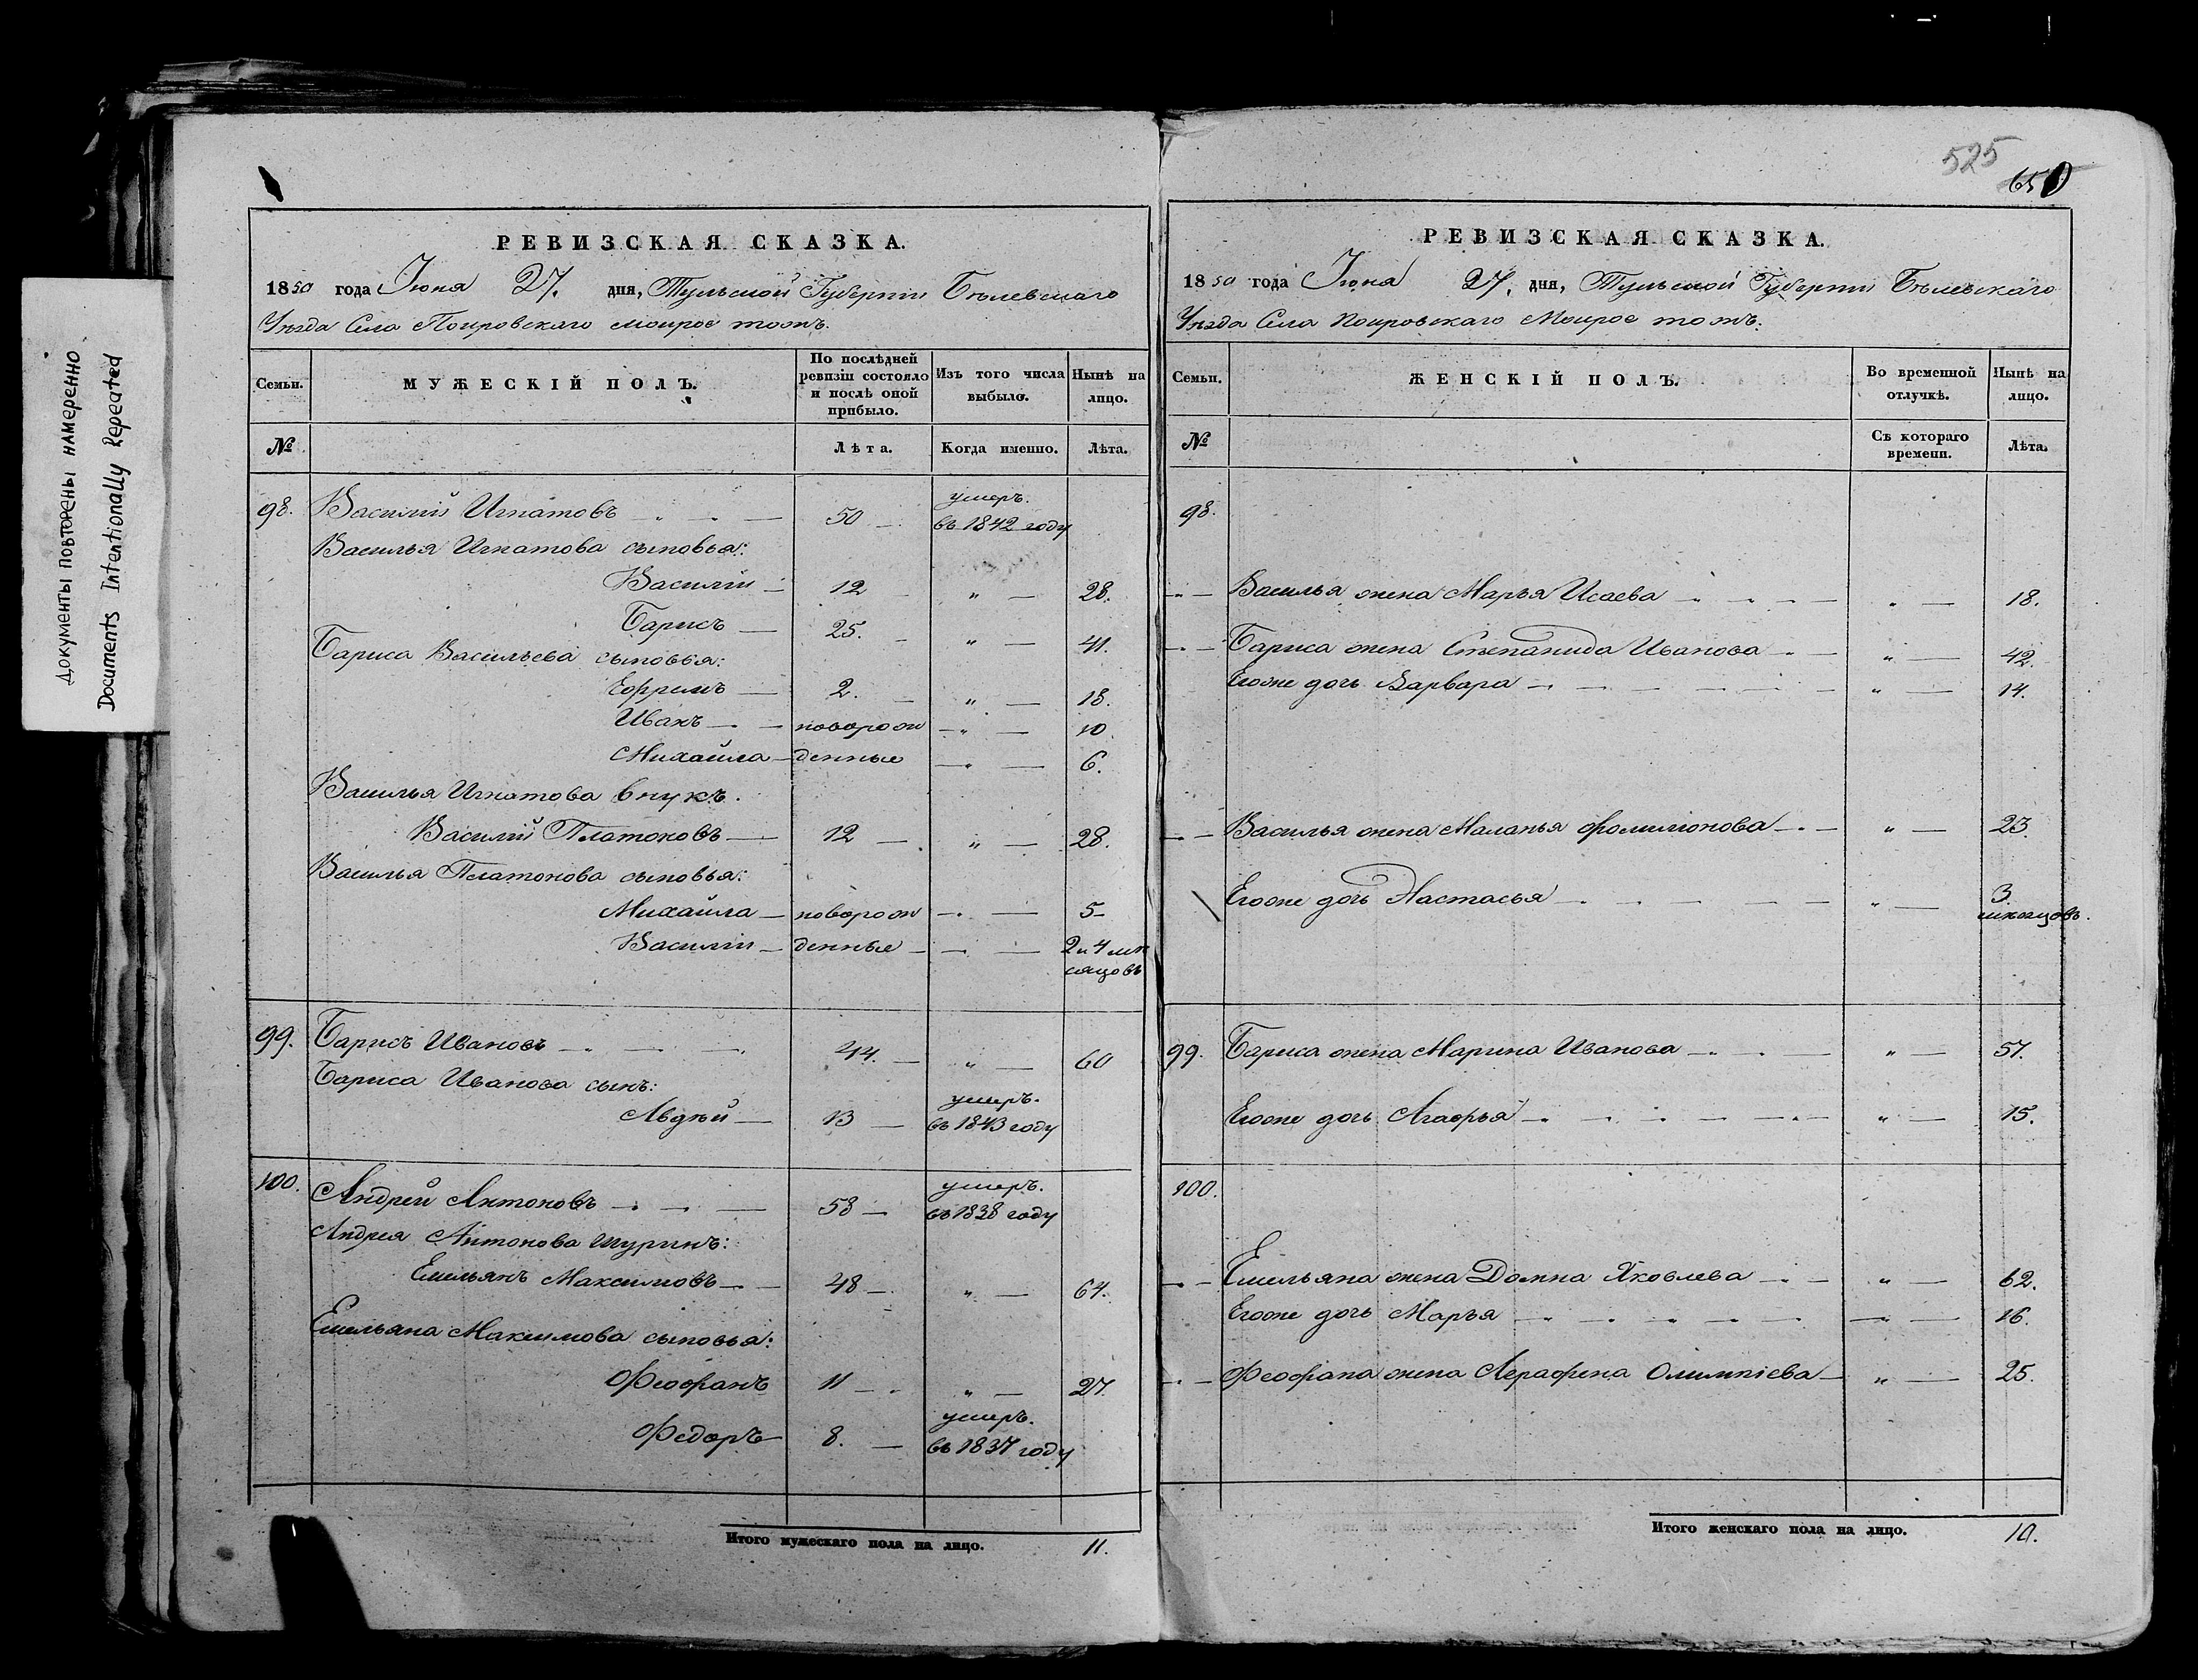 Документы повторены намеренно
Documents Intentionally Repeated
РЕВИЗСКАЯ СКАЗКА.
1850 года Июня 27. дня, Тульской Губерніи Бѣлевскаго
Уѣзда Села Покровскаго Мокрое тожъ.
Семьи.
МУЖЕСКІЙ ПОЛЪ.
По послѣдней ревизіи состояло и послѣ оной прибыло.
Изъ того числа выбыло.
Нынѣ на лицо.
№
Лѣта.
Когда именно.
Лѣта.
98. Василій Игнатовъ 50 умеръ. въ 1842 году
Василья Игнатова сыновья:
Василій 12 " 28.
Барисъ 25. " 41.
Бариса Васильева сыновья:
Ефримъ 2. " 18.
Иванъ новорож " 10.
Михайла денные " 6.
Василья Игнатова внукъ.
Василій Платоновъ 12 " 28.
Василья Платонова сыновья:
Михайла новорож 5
Василій денные 2 и 4 мѣ
сяцовъ
99. Барисъ Ивановъ 44. " 60
Бариса Иванова сынъ:
Авдѣй 13 умеръ. въ 1843 году
100. Андрей Антоновъ 58 умеръ. въ 1838 году
Андрея Антонова шуринъ:
Емельянъ Максимовъ 48 " 64.
Емельяна Максимова сыновья:
Феофанъ 11 " 27.
Федоръ 8. умеръ. въ 1837 году
Итого мужескаго пола на лицо. 11.
525
650
РЕВИЗСКАЯ СКАЗКА.
1850 года Июня 27, дня, Тульской Губерніи Бѣлевскаго
Уѣзда Села Покровскаго Мокрое тожъ:
Семьи.
ЖЕНСКІЙ ПОЛЪ.
Во временной отлучкѣ.
Нынѣ на лицо.
№
Съ котораго времени.
Лѣта.
98.
Василья жена Марья Исаева " 18.
Бариса жена Степанида Иванова " 42.
Егоже дочь Варвара " 14.
Василья жена Маланья Фомиліонова " 23.
Егоже дочь Настасья " 3.
мѣсяцовъ.
99. Бариса жена Марина Иванова " 57.
Егоже дочь Агафья " 15.
100.
Емельяна жена Домна Яковлева " 62.
Егоже дочь Марья " 16.
Феофана жена Аерафена Олимпіева " 25.
Итого женскаго пола на лицо. 10.